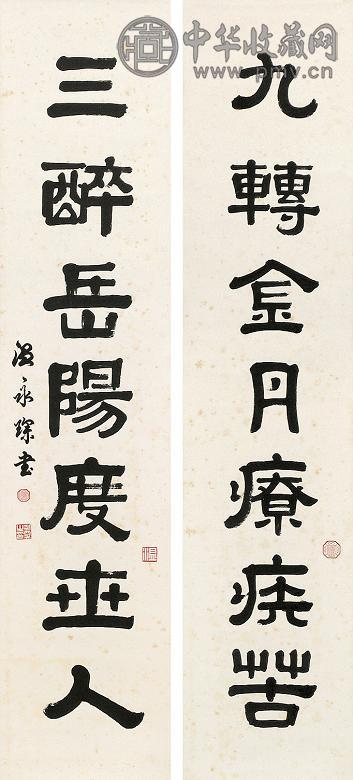 中华收藏网
九轉金丹療疾苦
三醉岳陽度世人
溫永琛書